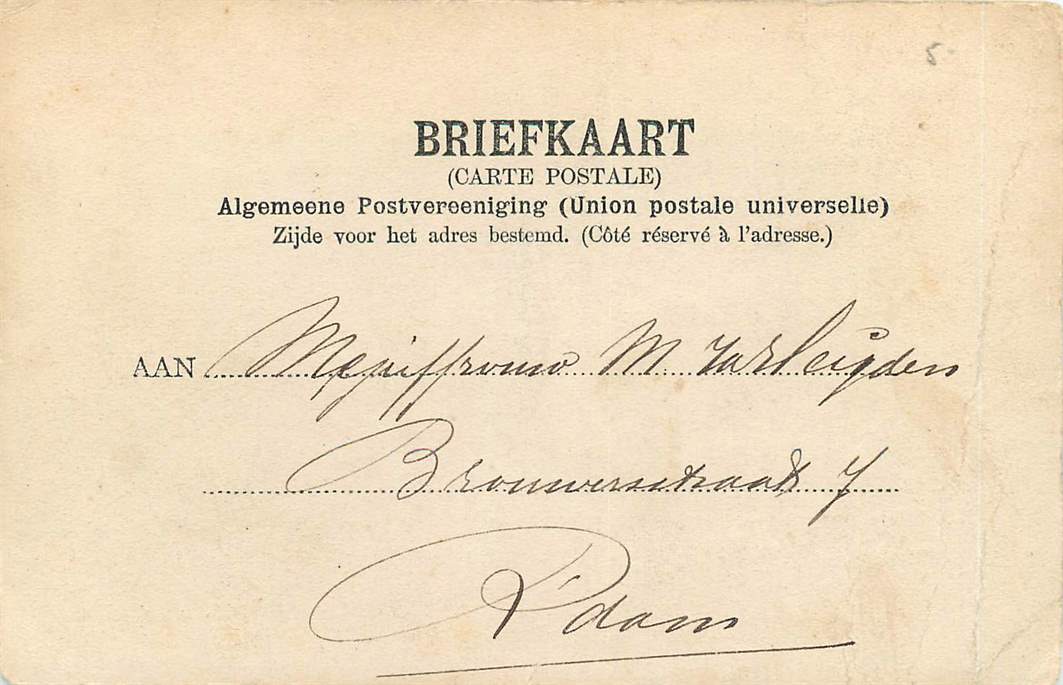 5-
BRIEFKAART
(CARTE POSTALE)
Algemeene Postvereeniging (Union postale universelle)
Zijde voor het adres bestemd. (Côté réservé à l'adresse.)
AAN Mejuffrouw M.
Brouwersstraat 7
R'dam